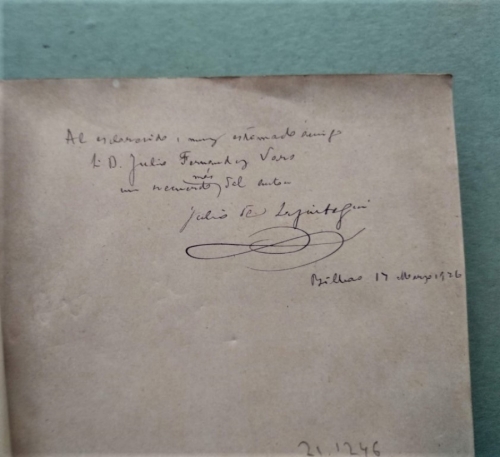 Al esclarecido y muy estimado amigo
Sr D. Julio Fernandez
más
un recuerdo, del autor
Julio de Lazurtegui
Bilbao 17 Marzo 1926
21.1246